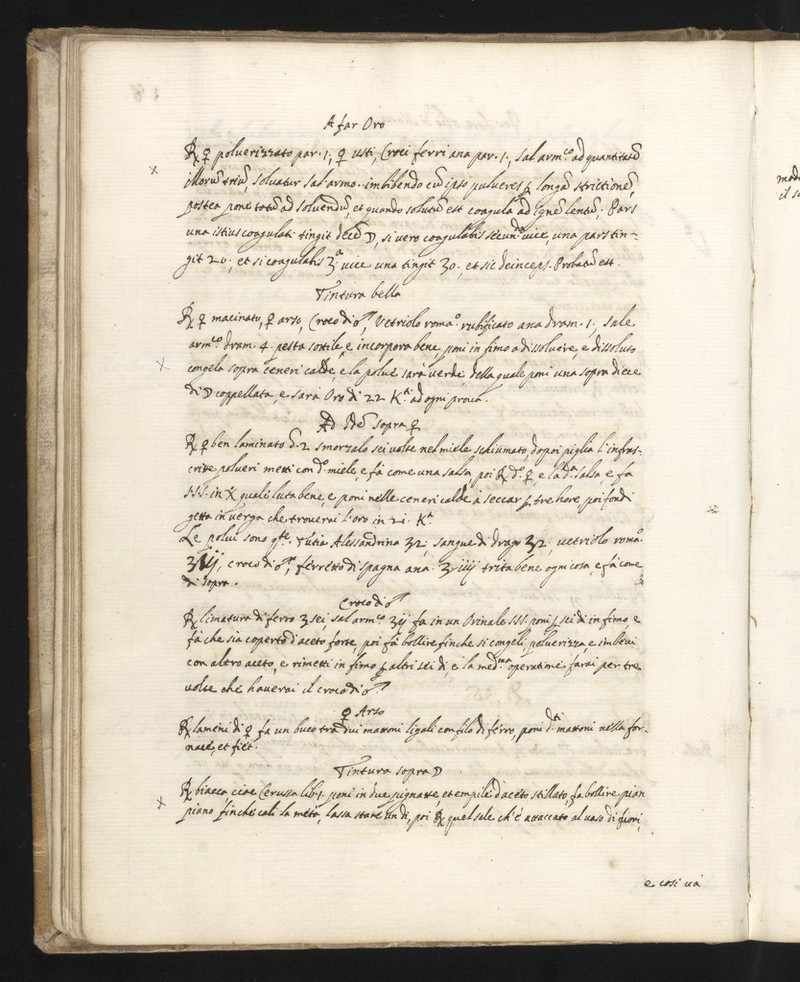 A far Oro
℞ ♀ polverizzato par. 1, ♀ usti, Croci ferri ana par. 1, Sal arm.co ad quantitatē
illorū triū, Solvatur Sal armo. imbibendo cū ipso pulveres p longā strictionē,
postea pone totū ad solvendū, et quando solutū est coagula ad ignē lentū. Pars
una istius coagulati tingit decē ☽, si vero coagulabis secunda vice, una pars tin-
git 20., et si coagulabis 3.a vice una tingit 30., et sic deinceps. Probatū est.
Tintura bella
x ℞ ♀ macinato, ♀ arso, Croco di ♂, Vetriolo roma.o rubificato ana dram. 1, Sale
arm.co dram. 4. pesta sottile, e incorpora bene, poni in fimo a dissolvere, e dissoluto
congela sopra ceneri calde, e la polve sarà verde della quale poni una sopra diece
di ☽ coppellata, e sarà Oro di 22 K.ti ad ogni prova.
Ad Idē sopra ♀
℞ ♀ ben laminato 2 smorzalo sei volte nel miele schiumato, dopoi piglia l'infras-
critte polveri metti con d.o miele, e fà come una salsa poi ℞ d.o ♀, e la d.a salsa e fa
SSS. in quali luta bene, e poni nelle ceneri calde à seccar p tre hore poi fondi
getta in verga che troverai l'oro in 21. K.ti
Le polvi sono q.te. Tutia Alessandrina ʒ2; sangue di drago ʒ2; vetriolo roma.o
croco di ♂, ferretto di spagna ana ʒ iiij trita bene ogni cosa, e fà come
di sopra.
Croco di ♂
℞ limatura di ferro ʒ sei, sal arm.co ʒ ij fa in un Orinale SSS. poni p sei dì in fimo, e
fà che sia coperto d'aceto forte, poi fà bollire finche si congeli, polverizza, e imbevi
con altro aceto, e rimetti in fimo p altri sei dì, e la med.ma operatione farai per tre
volte che haverai il croco di ♂
♀ Arso
℞ lamini di ♀ fa un buco trà dui mattoni ligali con filo di ferro, poni d.ti mattoni nella for-
nace, et fiet.
Tintura sopra ☽
x ℞ biacca cioe Cerussa lib. 1. poni in due pignatte, et empile d'aceto stillato, fa bollire pian
piano finche cali la metà, lassa stare un dì, poi ℞ quel sale ch'è attaccato al vaso di fuori,
e così và